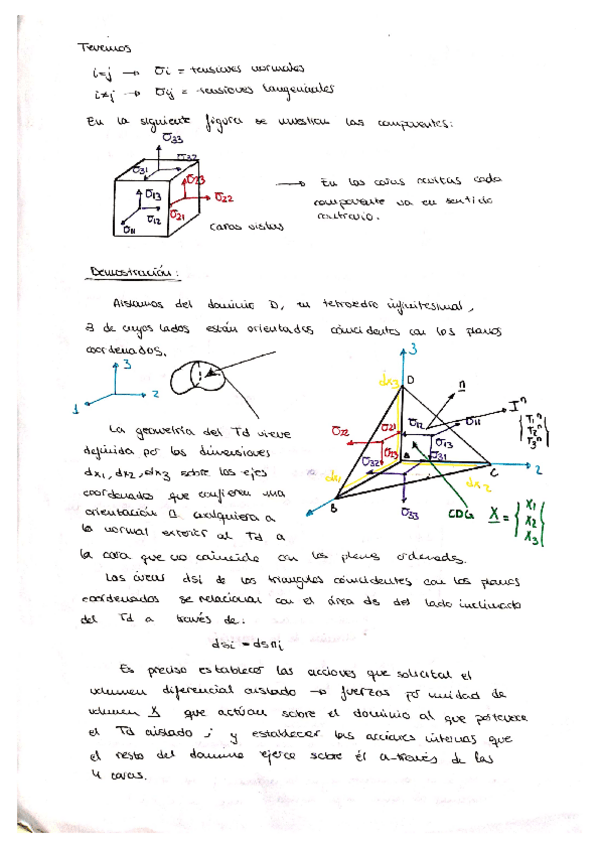 Tenemos
i=j → σi = tensiones normales
i≠j → σij = tensiones tangenciales
En la siguiente figura se muestran las componentes:
σ33
σ31 σ32
σ13 σ23
σ12 σ21 σ22
σ11
caras vistas
→ En las caras ocultas cada
componente va en sentido
contrario.
Demostración:
Aislamos del dominio D, un tetraedro infinitesimal,
3 de cuyos lados están orientados coincidentes con los planos
coordenados.
3
1 2
3
D
dx3
n
T^n
{T1^n
T2^n
T3^n}
σ22 σ21 σ12 σ11
σ23 σ13
σ32 σ31
dx1 dx2
C 2
B
σ33
CDG X = {X1
X2
X3}
La geometría del Td viene
definida por las dimensiones
dx1, dx2, dx3 sobre los ejes
coordenados que confieren una
orientación n cualquiera a
la normal exterior al Td a
la cara que no coincide con los planos ordenados.
Las áreas dsi de los triángulos coincidentes con los planos
coordenados se relacionan con el área ds del lado inclinado
del Td a través de:
dsi = dsni
Es preciso establecer las acciones que solicitan el
volumen diferencial aislado → fuerzas por unidad de
volumen X que actúan sobre el dominio al que pertenece
el Td aislado; y establecer las acciones internas que
el resto del dominio ejerce sobre él a través de las
4 caras.